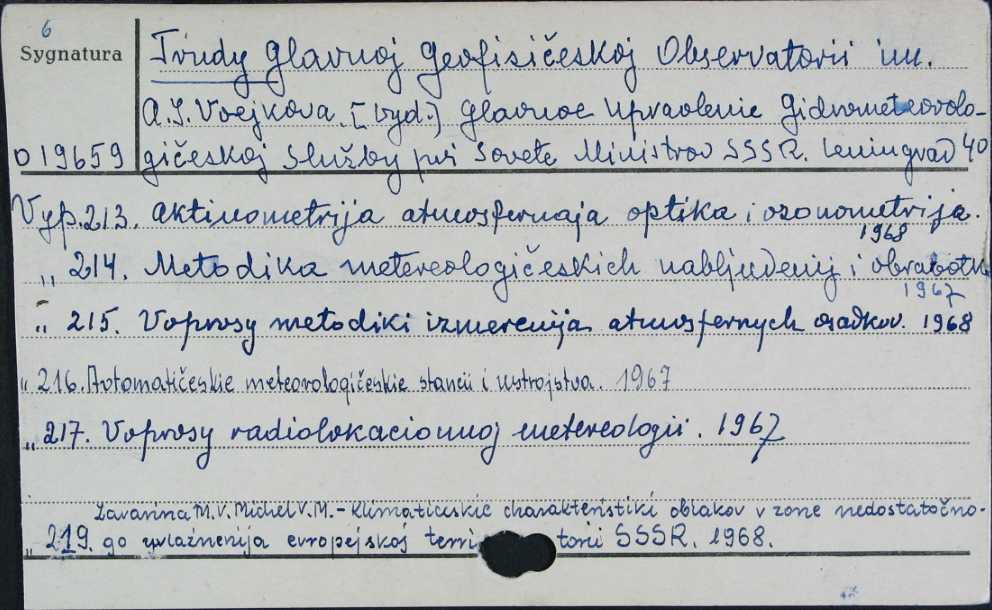 6
Sygnatura
Trudy Glavnoj Geofisičeskoj Observatorii im.
A.I. Voejkova. [wyd.] Glavnoe Upravlenie Gidrometeorolo-
D 19659 gičeskoj Služby pri Sovete Ministrov SSSR. Leningrad 40
Vyp. 213. Aktinometrija atmosfernaja optika i ozonometrija.
1968
„ 214. Metodika metereologičeskich nabljudenij i obrabotk
1967
„ 215. Voprosy metodiki izmerenija atmosfernych osadkov. 1968
„ 216. Avtomatičeskie meteorologičeskie stancii i ustrojstva. 1967
„ 217. Voprosy radiolokacionnoj metereologii. 1967
Zavarina M.V. Michel V.M. - Klimatičeskie charakteristiki oblakov v zone nedostatočno-
„ 219. go uvlažnenija evropejskoj terri torii SSSR. 1968.